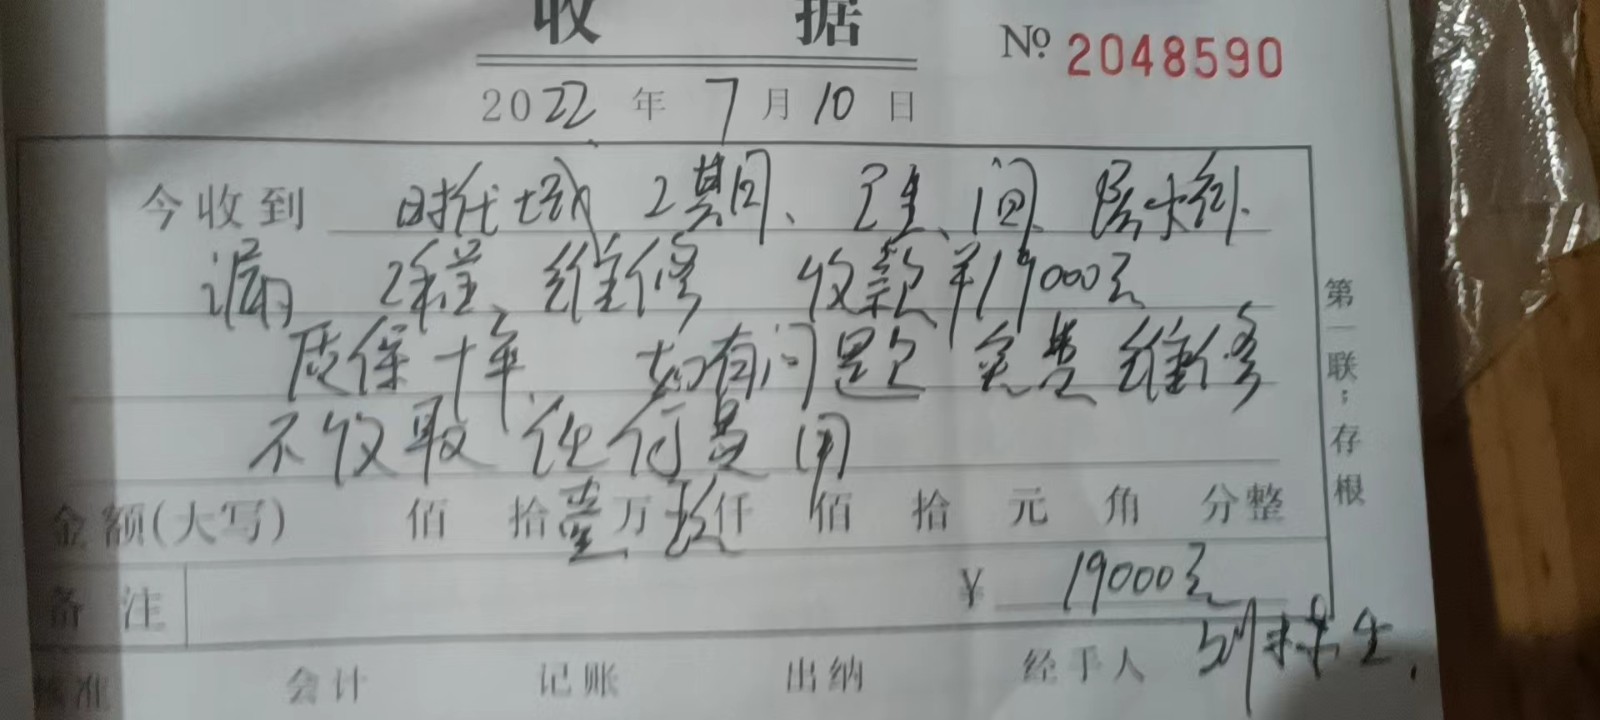 收 据
№ 2048590
2022 年 7 月 10 日
今收到 时代城 2期、卫生间 防水补
漏 工程、维修 收款¥19000元
质保十年、如有问题免费维修
不收取任何费用
金额(大写) 佰 拾壹万玖仟 佰 拾 元 角 分整
备 注 ¥ 19000元
核准 会计 记账 出纳 经手人 刘 生
第一联:存根